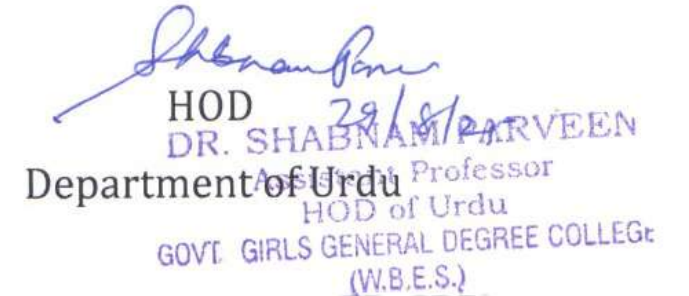 Shabnam Parveen
HOD
29/8/25
DR. SHABNAM PARVEEN
Department of Urdu
Assistant Professor
HOD of Urdu
GOVT. GIRLS GENERAL DEGREE COLLEGE
(W.B.E.S.)